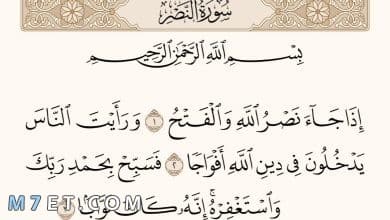 سُورَةُ النَّصْرِ
بِسْمِ ٱللَّهِ ٱلرَّحْمَٰنِ ٱلرَّحِيمِ
إِذَا جَآءَ نَصْرُ ٱللَّهِ وَٱلْفَتْحُ ١ وَرَأَيْتَ ٱلنَّاسَ
يَدْخُلُونَ فِي دِينِ ٱللَّهِ أَفْوَاجًا ٢ فَسَبِّحْ بِحَمْدِ رَبِّكَ
وَٱسْتَغْفِرْهُ ۚ إِنَّهُۥ كَانَ تَوَّابًۢا
M7ET.COM